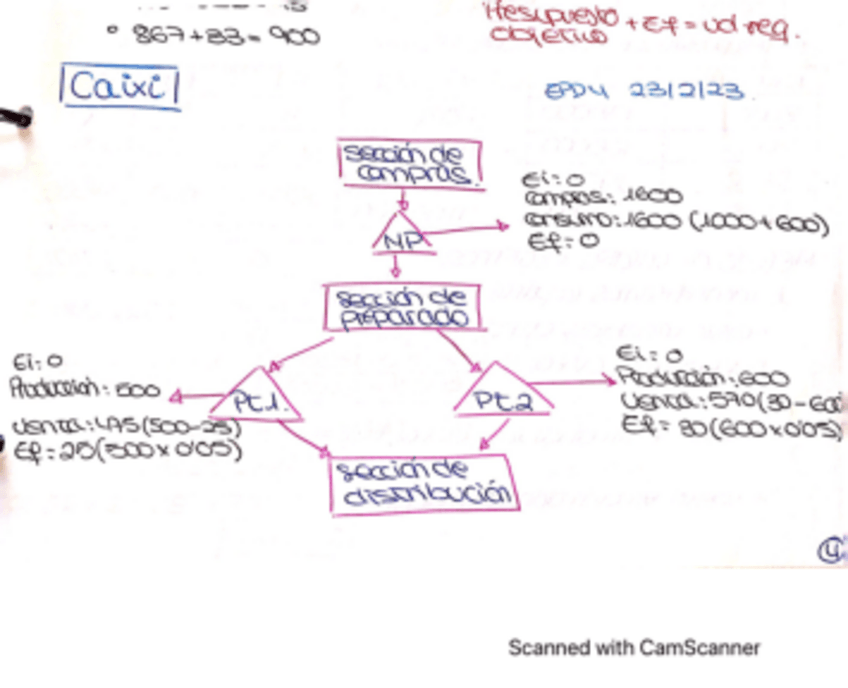 ° 867+33= 900
Presupuesto
objetivo + Ef = ud req.
Caixi
EPD4 23/2/23.
Sección de
compras.
Ei: 0
compras: 1600
consumo: 1600 (1000+600)
Ef: 0
MP
Sección de
preparado
Ei: 0
Producción: 500
Venta: 475 (500-25)
Ef: 25 (500x0'05)
Pt.1.
Pt2
Ei: 0
Producción: 600
Venta: 570 (30-600
Ef= 30 (600x0'05)
Sección de
distribución
4
Scanned with CamScanner